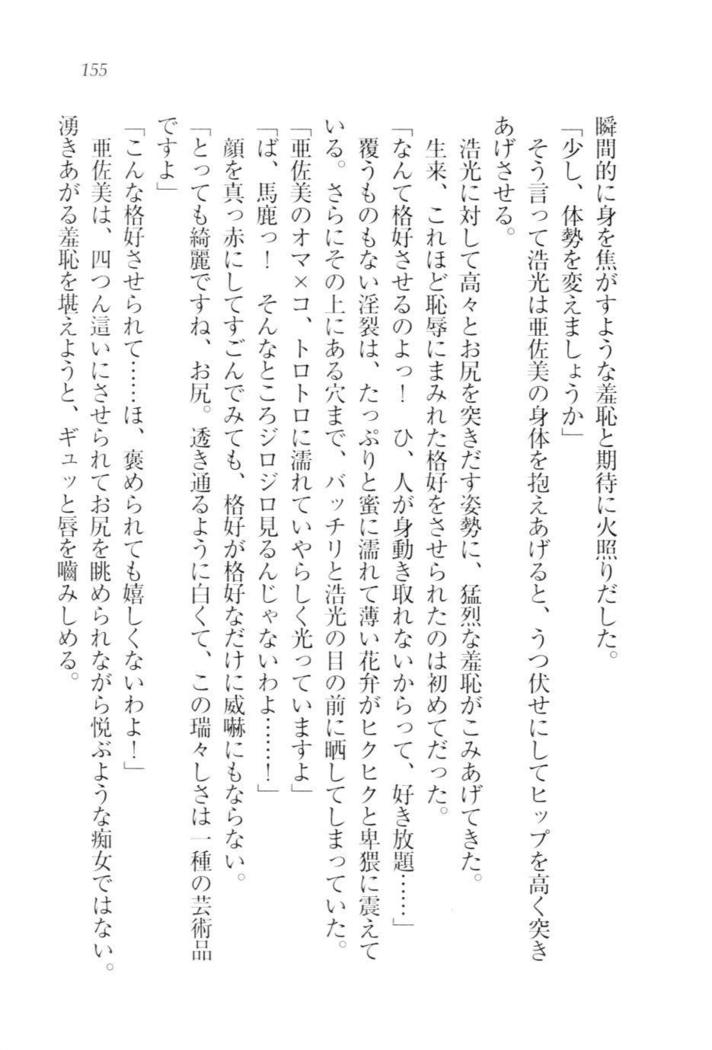 155
瞬間的に身を焦がすような羞恥と期待に火照りだした。
「少し、体勢を変えましょうか」
そう言って浩光は亜佐美の身体を抱えあげると、うつ伏せにしてヒップを高く突き
あげさせる。
浩光に対して高々とお尻を突きだす姿勢に、猛烈な羞恥がこみあげてきた。
生来、これほど恥辱にまみれた格好をさせられたのは初めてだった。
「なんて格好させるのよっ！　ひ、人が身動き取れないからって、好き放題……」
覆うものもない淫裂は、たっぷりと蜜に濡れて薄い花弁がヒクヒクと卑猥に震えて
いる。さらにその上にある穴まで、バッチリと浩光の目の前に晒してしまっていた。
「亜佐美のオマ×コ、トロトロに濡れていやらしく光っていますよ」
「ば、馬鹿っ！　そんなところジロジロ見るんじゃないわよ……！」
顔を真っ赤にしてすごんでみても、格好が格好なだけに威嚇にもならない。
「とっても綺麗ですね、お尻。透き通るように白くて、この瑞々しさは一種の芸術品
ですよ」
「こんな格好させられて……ほ、褒められても嬉しくないわよ！」
亜佐美は、四つん這いにさせられてお尻を眺められながら悦ぶような痴女ではない。
湧きあがる羞恥を堪えようと、ギュッと唇を嚙みしめる。